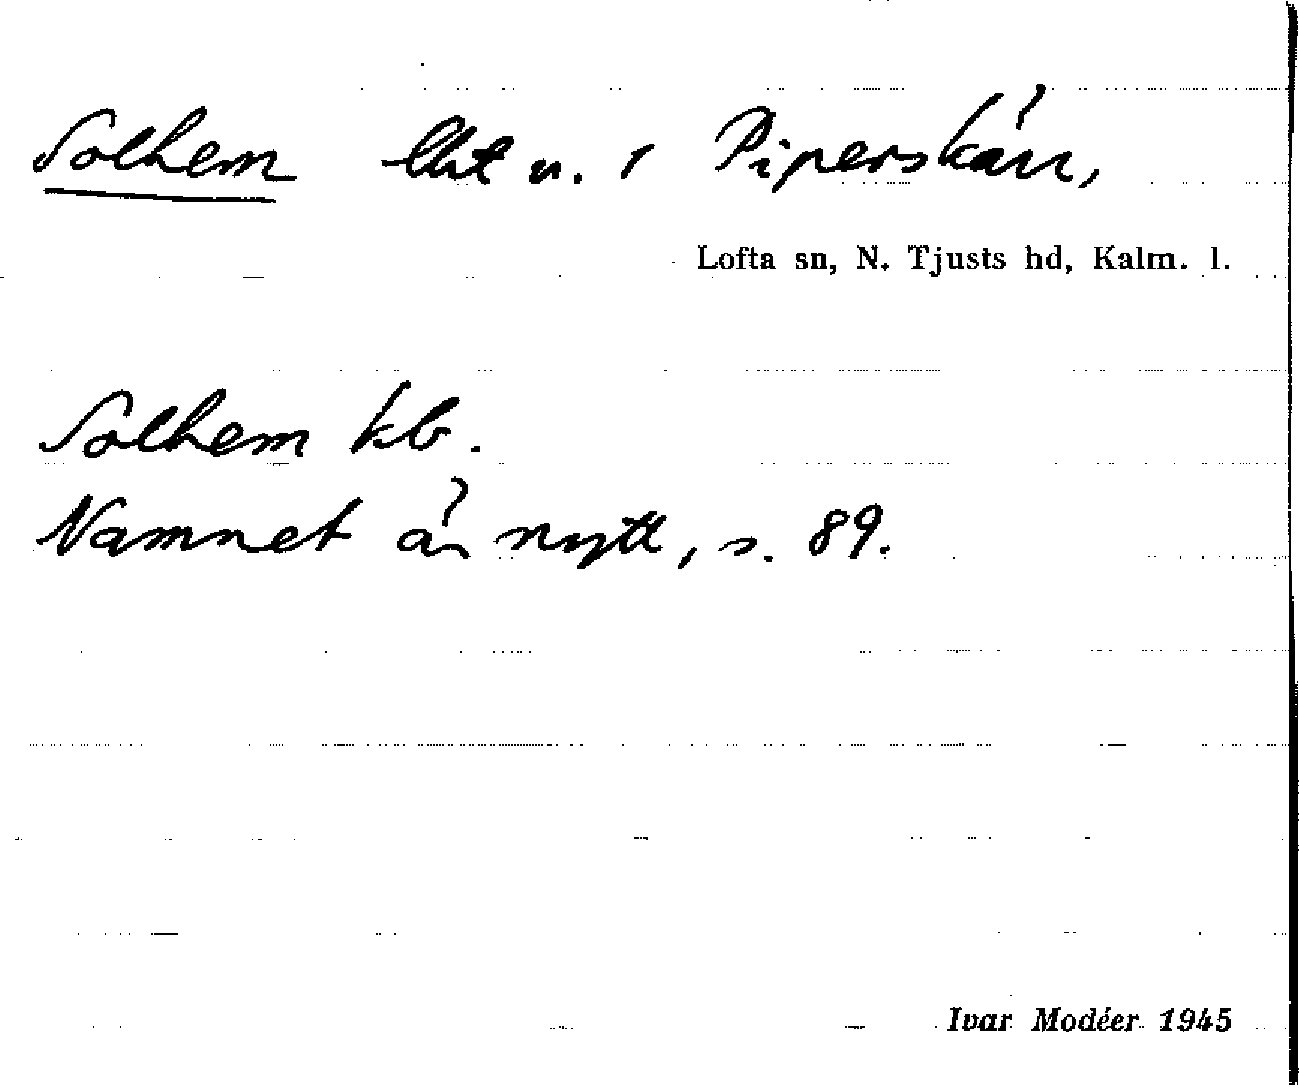 Solhem lht u. 1 Piperskärr,
Lofta sn, N. Tjusts hd, Kalm. l.
Solhem kb.
Namnet är nytt, s. 89.
Ivar Modéer 1945